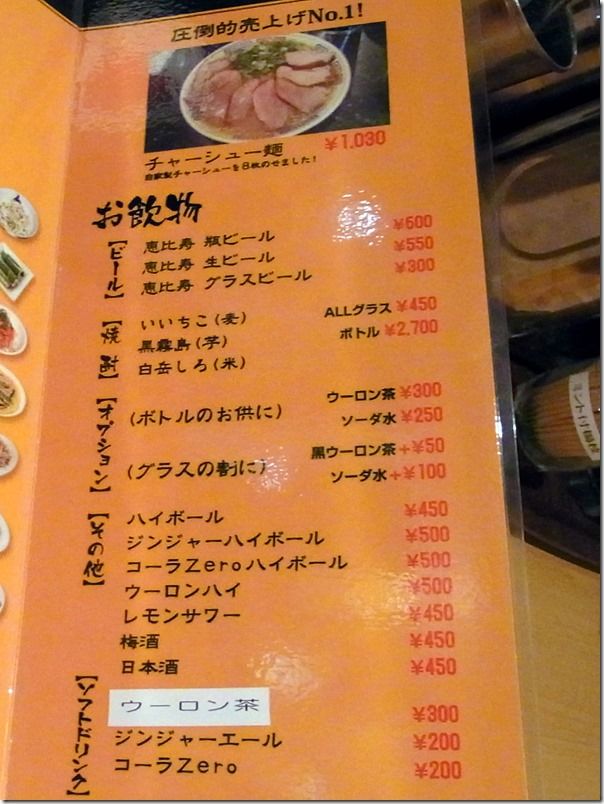 圧倒的売上げNo.1!
チャーシュー麺 ¥1,030
自家製チャーシューを8枚のせました!
お飲物
【ビール】
恵比寿 瓶ビール ¥600
恵比寿 生ビール ¥550
恵比寿 グラスビール ¥300
【焼酎】
いいちこ(麦) ALLグラス ¥450
黒霧島(芋) ボトル ¥2,700
白岳しろ(米)
【オプション】
(ボトルのお供に) ウーロン茶 ¥300
ソーダ水 ¥250
(グラスの割に) 黒ウーロン茶+¥50
ソーダ水+¥100
【その他】
ハイボール ¥450
ジンジャーハイボール ¥500
コーラZeroハイボール ¥500
ウーロンハイ ¥500
レモンサワー ¥450
梅酒 ¥450
日本酒 ¥450
【ソフトドリンク】
ウーロン茶 ¥300
ジンジャーエール ¥200
コーラZero ¥200